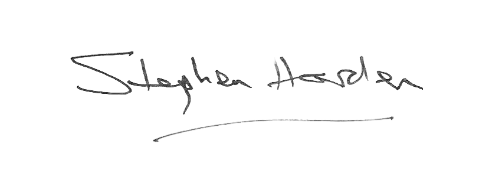 Stephen Harden